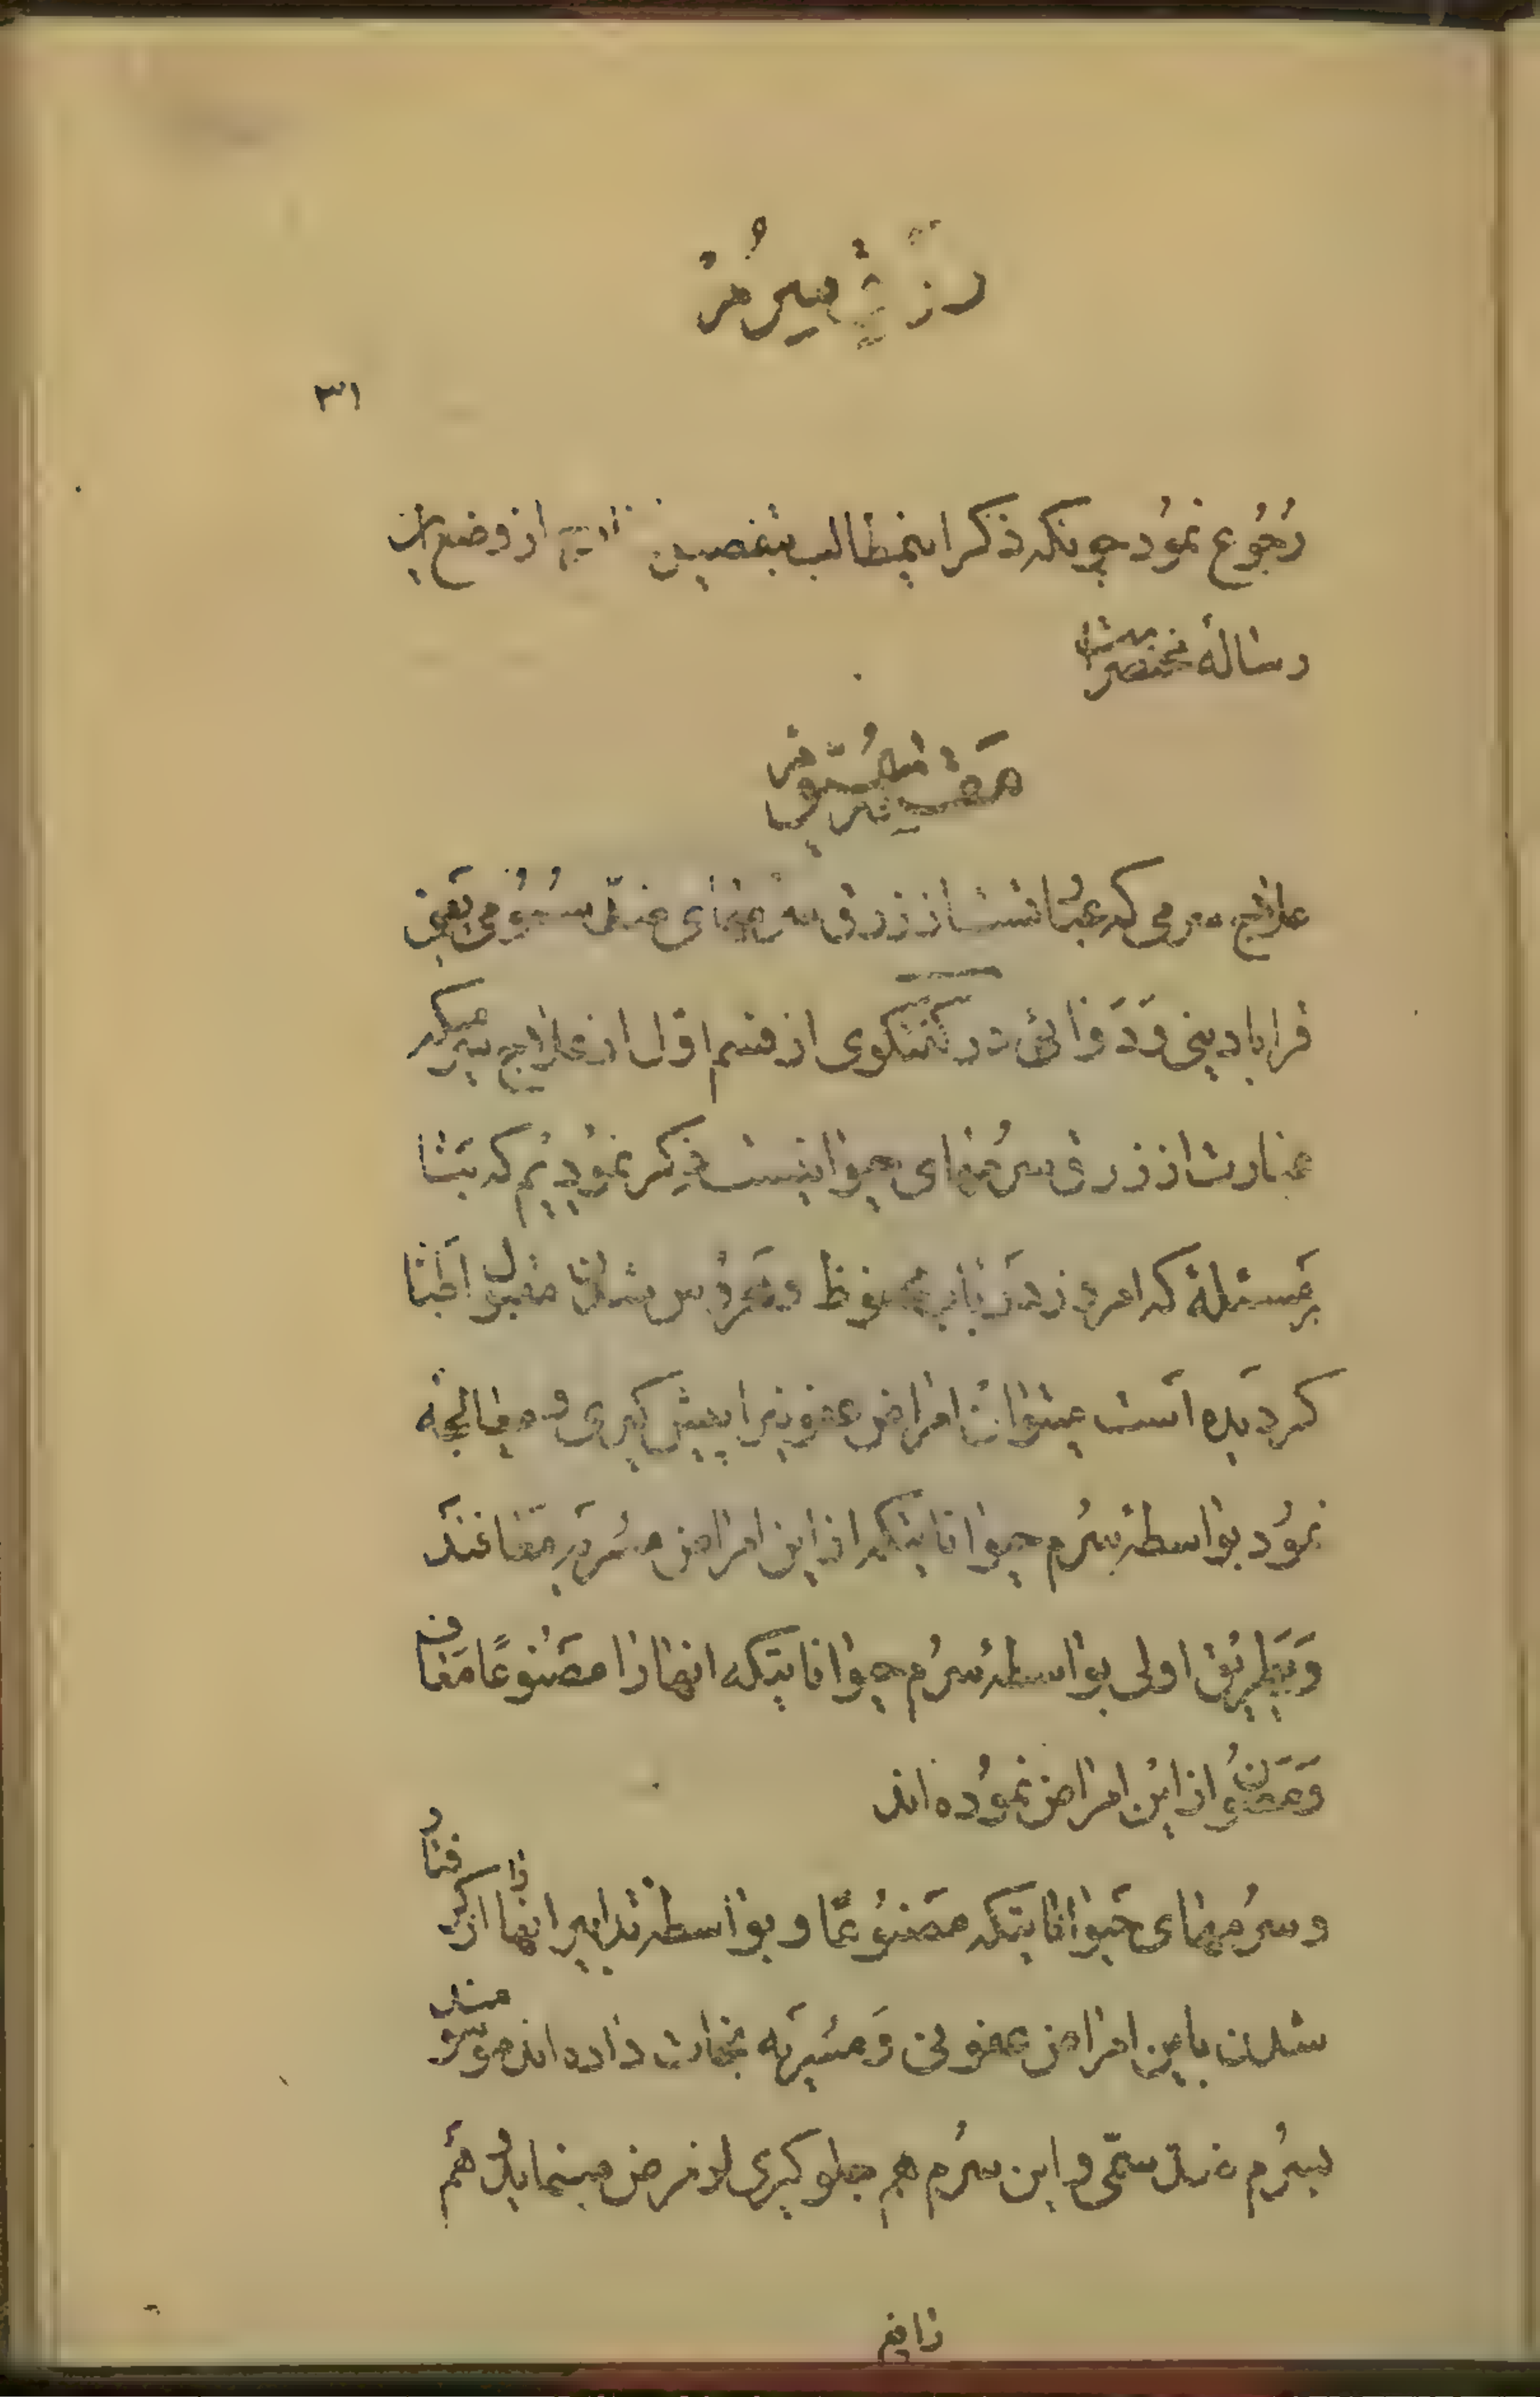 در سرم
۳۱
رجوع نمود چونکه ذکر اینمطالب بتفصیل از وضع این
رسالهٔ مختصر است
علاج سرمی که عبارتست از زرق سرمهای ضد سمومی یعنی
قرابادینی و دوائی در گفتگوی از قسم اول از علاج سرمی که
عبارت از زرق سرمهای حیوانیست ذکر نمودیم که بنا
بر مسئلهٔ که امروز در نزد اطبا مقبول
گردیده است میتوان امراض عفونیرا پیش گیری و معالجه
نمود بواسطهٔ سرم حیواناتیکه از این امراض مسریه معافند
و بطریق اولی بواسطهٔ سرم حیواناتیکه انها را مصنوعاً معاف
و مصون از این امراض نموده اند
و سرمهای حیواناتیکه مصنوعاً و بواسطهٔ تدابیر انها را از گرفتار
شدن باین امراض عفونی و مسریه نجات داده اند موسومند
بسرم ضد سمی و این سرم هم جلوگیری از مرض مینماید و هم
رافع